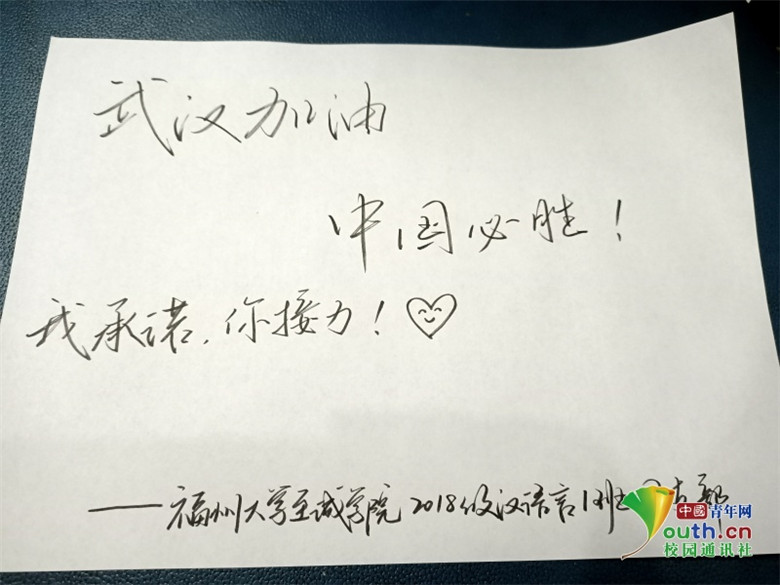 武汉加油
中国必胜！
我承诺，你接力！
——福州大学至诚学院2018级汉语言1班
中國青年网
youth.cn
校园通讯社